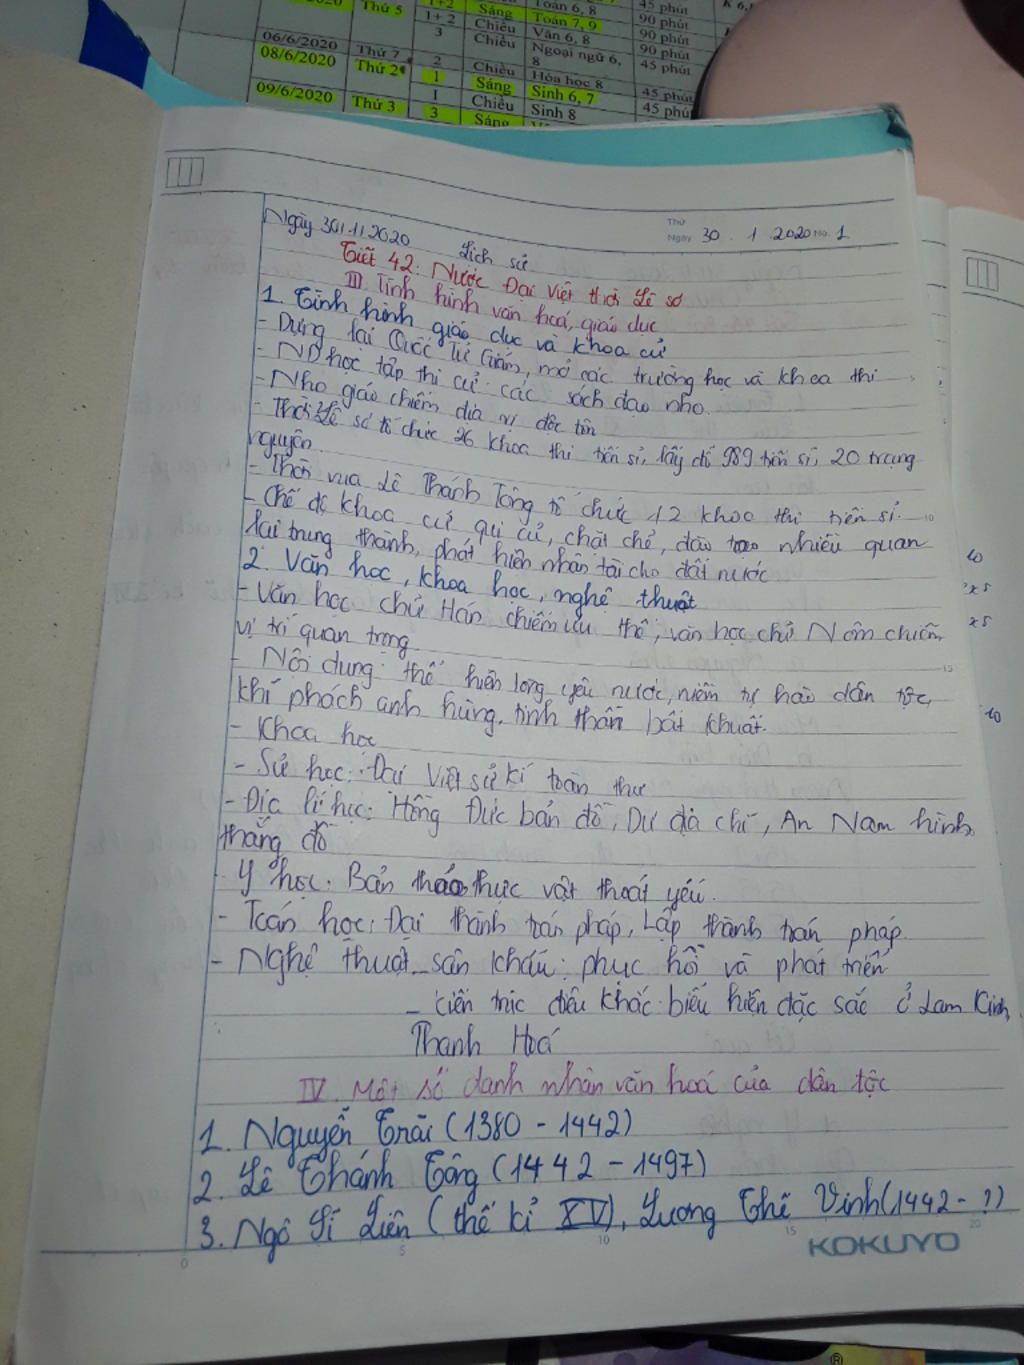 Thứ 5
1+2
Sáng
Toán 6, 8
45 phút
1+ 2
Chiều
Toán 7, 9
90 phút
3
Chiều
Văn 6, 8
90 phút
06/6/2020
Thứ 7
2
Chiều
Ngoại ngữ 6, 8
90 phút
08/6/2020
Thứ 2
1
Sáng
Hóa học 8
45 phút
09/6/2020
Thứ 3
1
Chiều
Sinh 6, 7
45 phút
3
Sáng
Sinh 8
45 phút
Thứ
Ngày 30 . 1 . 2020 No. 1
Ngày 30 1 2020 Lịch sử
Tiết 42: Nước Đại Việt thời Lê sơ
III. Tình hình văn hoá, giáo dục
1. Tình hình giáo dục và khoa cử
- Dựng lại Quốc Tử Giám, mở các trường học và khoa thi
- ND học tập thi cử: các sách đạo nho.
- Nho giáo chiếm địa vị độc tôn
- Thời Lê sơ tổ chức 26 khoa thi tiến sĩ, lấy đỗ 989 tiến sĩ, 20 trạng
nguyên.
- Thời vua Lê Thánh Tông tổ chức 12 khoa thi tiến sĩ.
- Chế độ khoa cử qui củ, chặt chẽ, đào tạo nhiều quan
lại trung thành, phát hiện nhân tài cho đất nước
2. Văn học, khoa học, nghệ thuật
- Văn học chữ Hán chiếm ưu thế, văn học chữ Nôm chiếm
vị trí quan trọng
- Nội dung: thể hiện lòng yêu nước, niềm tự hào dân tộc,
khí phách anh hùng, tinh thần bất khuất.
- Khoa học
- Sử học: Đại Việt sử kí toàn thư
- Địa lí học: Hồng Đức bản đồ, Dư địa chí, An Nam hình
thăng đồ
- Y học: Bản thảo thực vật thoát yếu.
- Toán học: Đại thành toán pháp, Lập thành toán pháp.
- Nghệ thuật sân khấu: phục hồi và phát triển
- kiến trúc điêu khắc biểu hiện đặc sắc ở Lam Kinh,
Thanh Hoá
IV. Một số danh nhân văn hoá của dân tộc
1. Nguyễn Trãi (1380 - 1442)
2. Lê Thánh Tông (1442 - 1497)
3. Ngô Sĩ Liên (thế kỉ XV), Lương Thế Vinh (1442 - ?)
0 5 10 15 20
KOKUYO